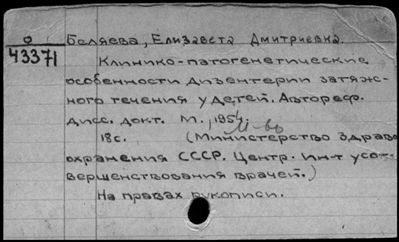 0
43371
Беляева, Елизавета Дмитриевна.
Клинико-патогенетические
особенности дизентерии затяж-
ного течения у детей. Автореф.
дисс. докт. М., 1954.
М-во
18с. (Министерство здраво
охранения СССР. Центр. ин-т усо-
вершенствования врачей.)
На правах рукописи.